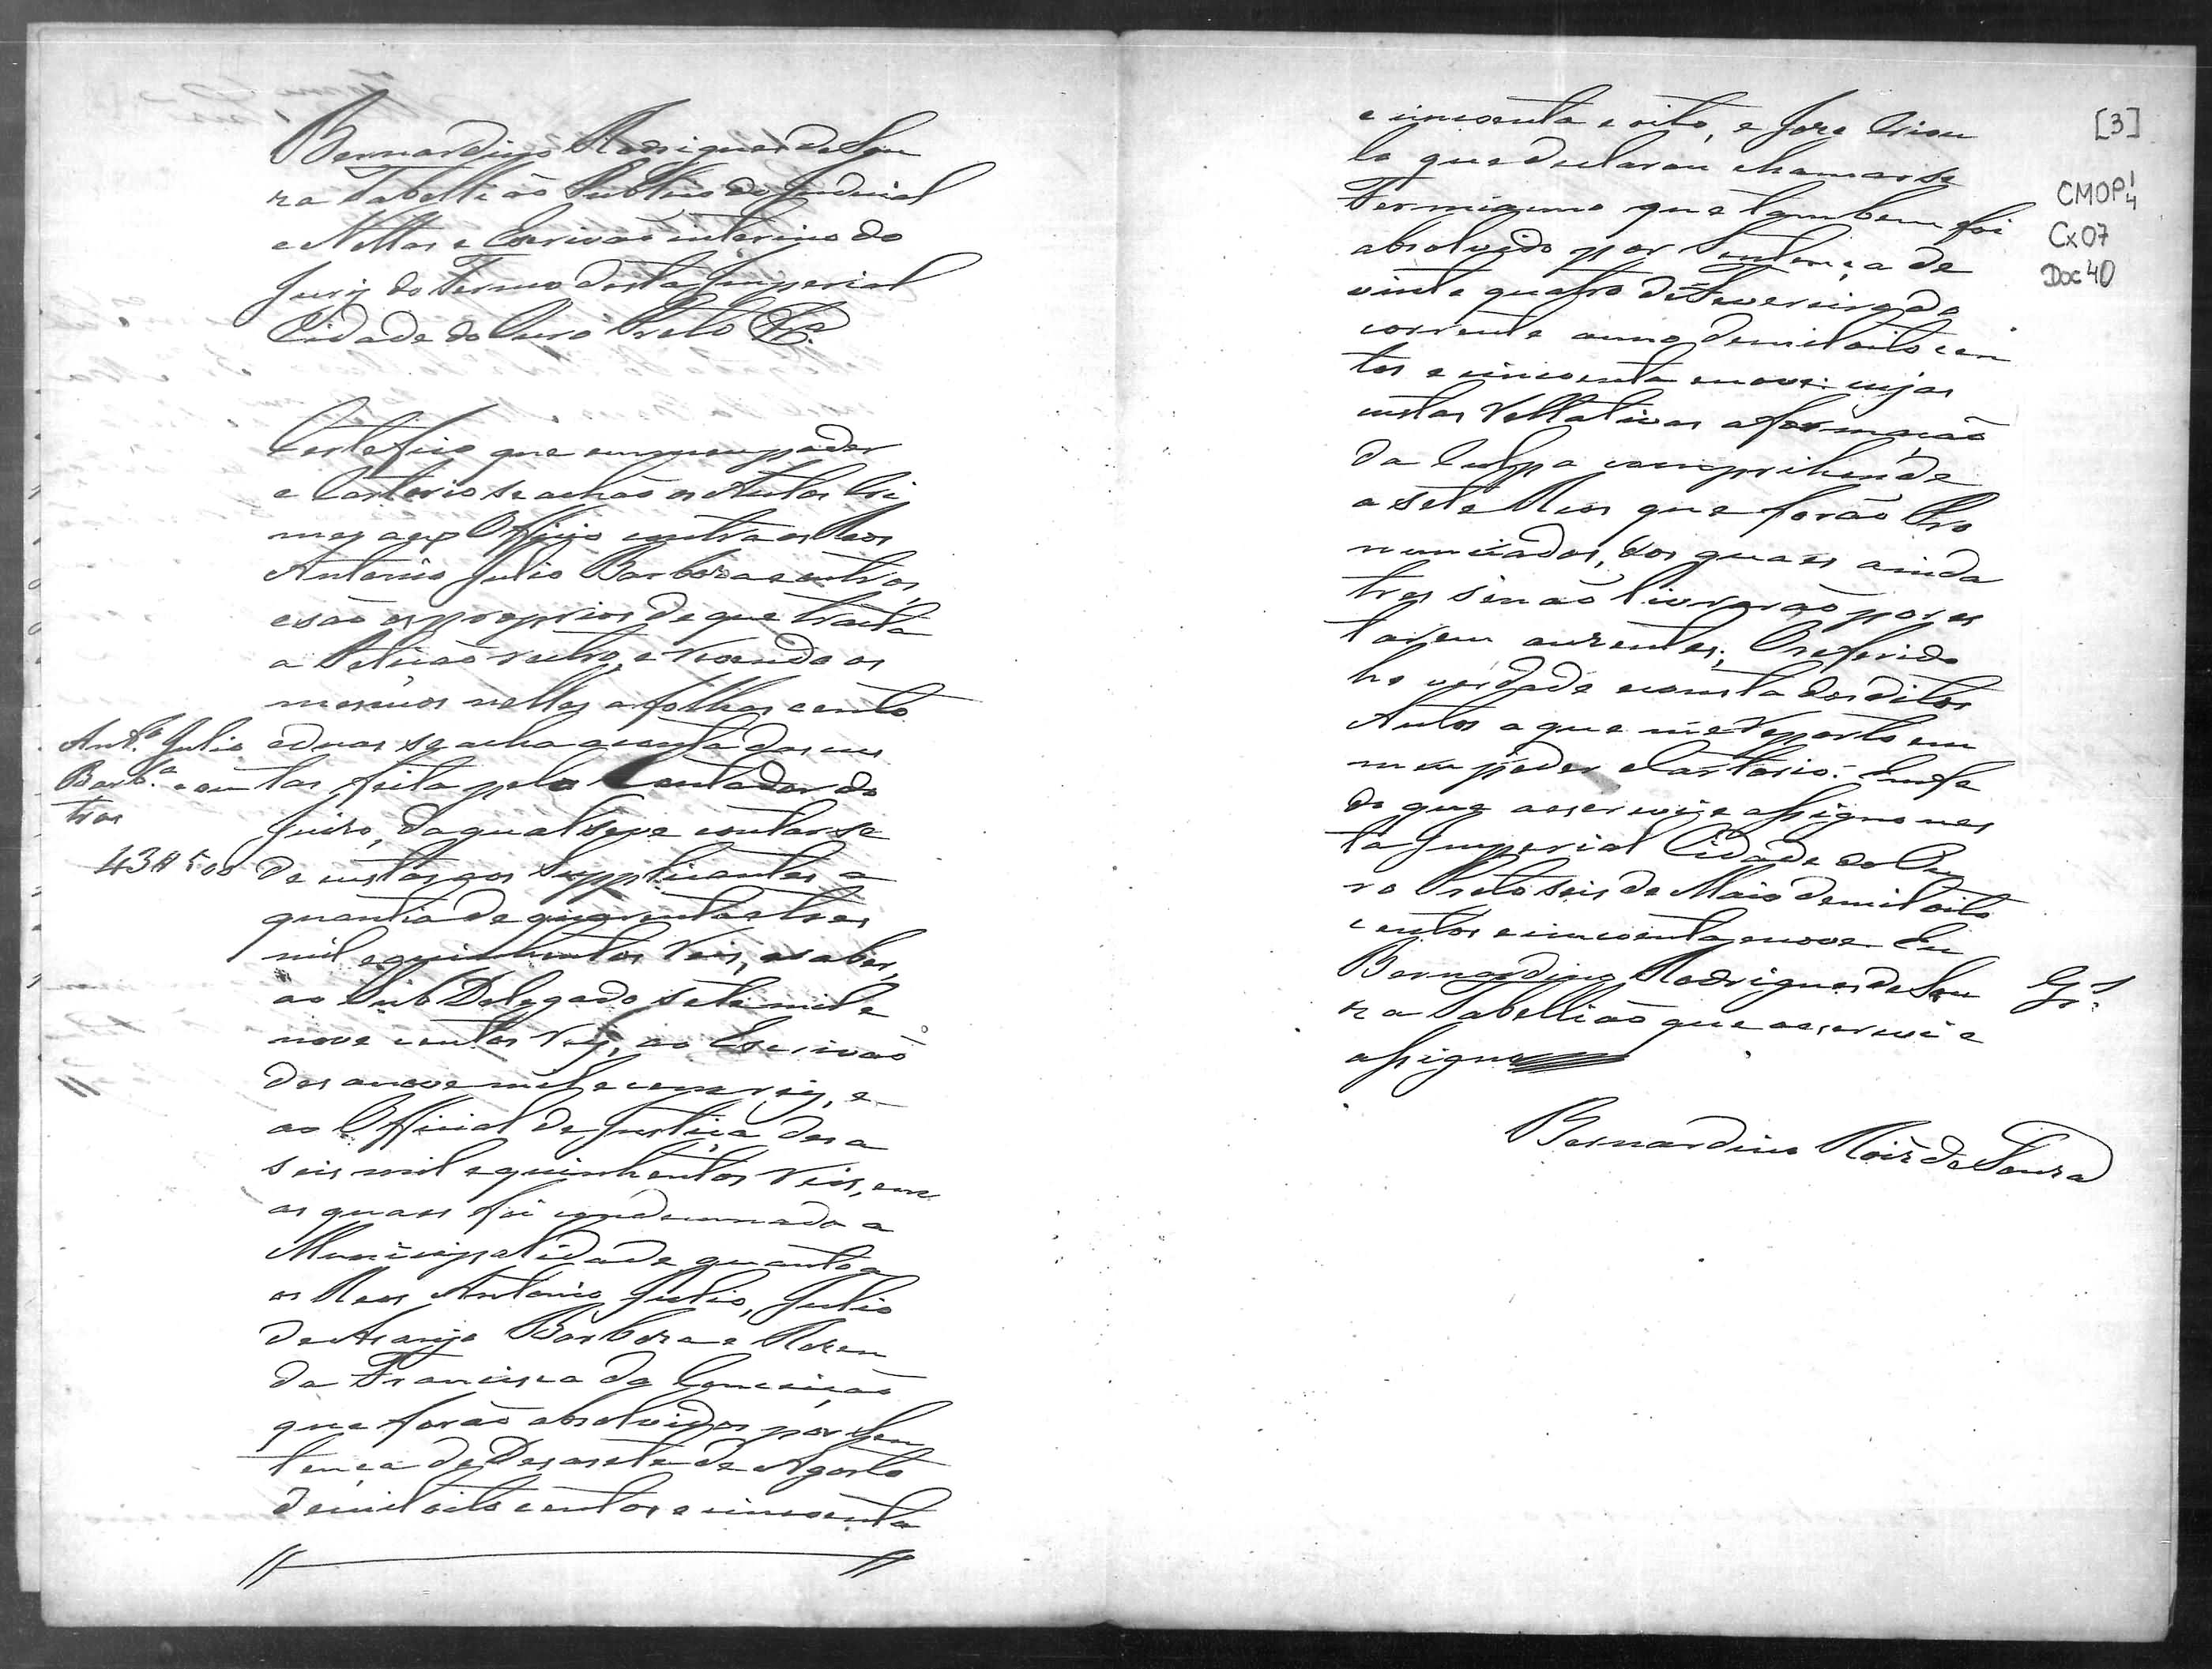 Bernardino Rodrigues de Sou
za Tabellião Publico do Judicial
e Nottas e Escrivão interino do
Jury do Termo desta Imperial
Cidade do Ouro Preto &ª.
Certefico que em meu poder
e Cartorio se achão os Autos Cri
mes ex Officio contra os Reos
Antonio Julio Barboza e outros,
e são os proprios de que trata
a Petição retro, e revendo os
mesmos nelles a folhas cento
Antº. Julio
Barbª. e ou
tros
43#500
e duas se acha a conta das cus
tas feita pelo Contador do
Juizo, da qual se ve contar-se
de custas aos Supplicantes a
quantia de quarenta e tres
mil e quinhentos reis, a saber,
ao Sub Delegado sete mil e
nove centos reis, ao Escrivão
dezanove mil e cem reis, e
ao Official de Justiça deza
seis mil e quinhentos reis, em
as quaes foi condemnada a
Municipalidade quanto a
os Reos Antonio Julio, Julio
de Araujo Barboza e Rozen
da Francisca da Conceição
que forão absolvidos por Sen
tença de Dezasete de Agosto
de mil oito centos e cincoenta
[3]
CMOP 1/4
Cx07
Doc 40
e cincoenta e oito, e Joze Criou
lo que declarou chamar-se
Fermiano que tambem foi
absolvido por Sentença de
vinte quatro de Fevereiro do
corrente anno de mil oito cen
tos e cincoenta e nove: cujas
custas rellativas a formação
da Culpa comprihende
a sete Reos que forão Pro
nunciados, dos quaes ainda
tres se não livrarão por es
tarem auzentes; O referido
he verdade e consta dos ditos
Autos a que me reporto em
meu poder e Cartorio. Em fé
do que a escrevi e assigno nes
ta Imperial Cidade do Ou
ro Preto seis de Maio de mil oito
centos e cincoenta e nove Eu
Bernardino Rodrigues de Sou
za Tabellião que a escrevi e
assigno
Bernardino Roiz de Souza